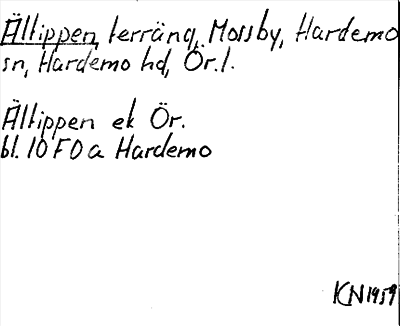 Ältippen, terräng, Mossby, Hardemo
sn, Hardemo hd, Ör. l.
Ältippen ek Ör.
bl. 10 F 0 a Hardemo
KN 1959